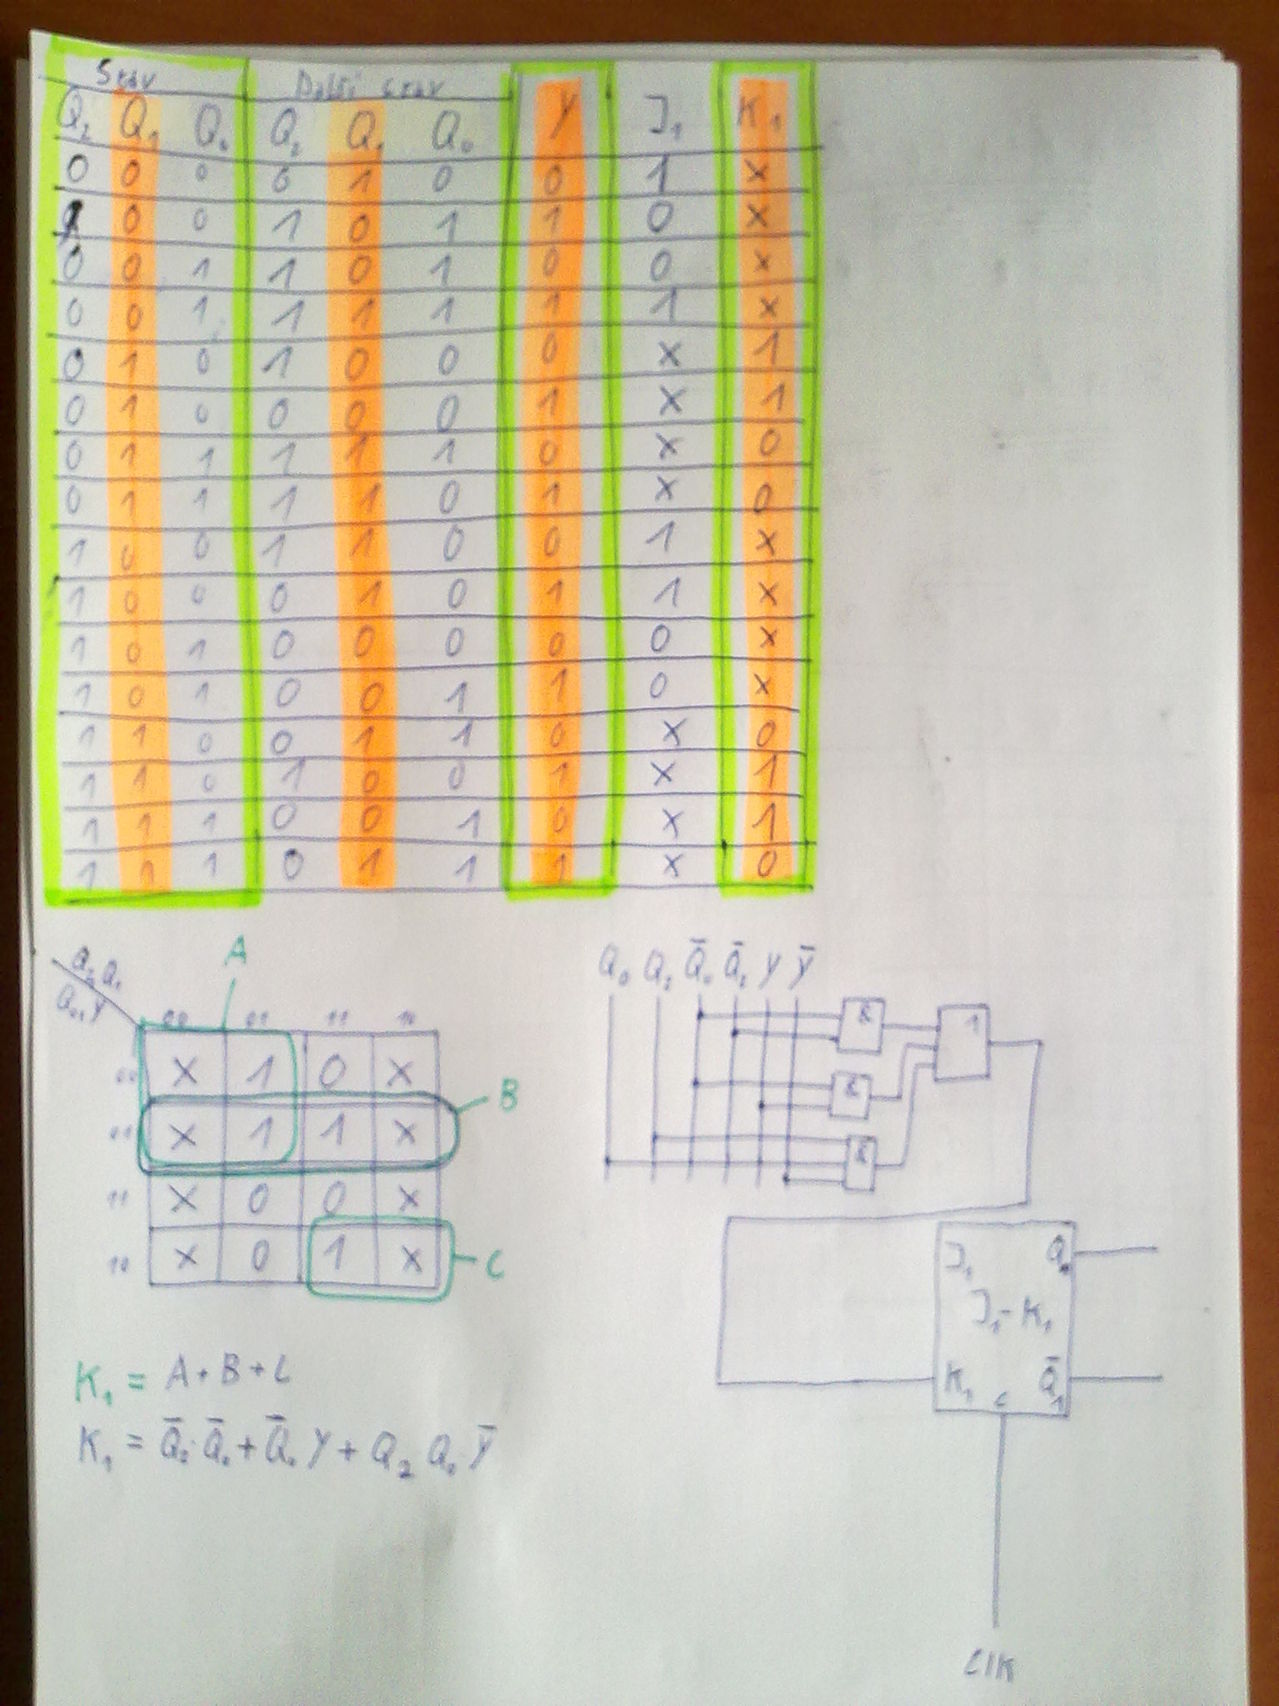 Stav Další stav
Q₂ Q₁ Q₀ Q₂ Q₁ Q₀ Y J₁ K₁
0 0 0 0 1 0 0 1 x
0 0 1 0 1 1 0 x
0 0 1 1 0 1 0 0 x
0 0 1 1 1 1 1 1 x
0 1 0 1 0 0 0 x 1
0 1 0 0 0 0 1 x 1
0 1 1 1 1 1 0 x 0
0 1 1 1 1 0 1 x 0
1 0 0 1 1 0 0 1 x
1 0 0 0 1 0 1 1 x
1 0 1 0 0 0 0 0 x
1 0 1 0 0 1 1 0 x
1 1 0 0 1 1 0 x 0
1 1 0 1 0 0 1 x 1
1 1 1 0 0 1 0 x 1
1 1 1 0 1 1 1 x 0
A
Q₂ Q₁
Q₀, Y
00 01 11 10
00 x 1 0 x
01 x 1 1 x B
11 x 0 0 x
10 x 0 1 x C
K₁ = A + B + C
K₁ = Q̅₂ · Q̅₀ + Q̅₀ Y + Q₂ Q₀ · Y̅
Q₀ Q₂ Q̅₀ Q̅₂ Y Y̅
& 1
&
&
J₁ Q₁
J₁-K₁
K₁ C Q̅₁
Clk